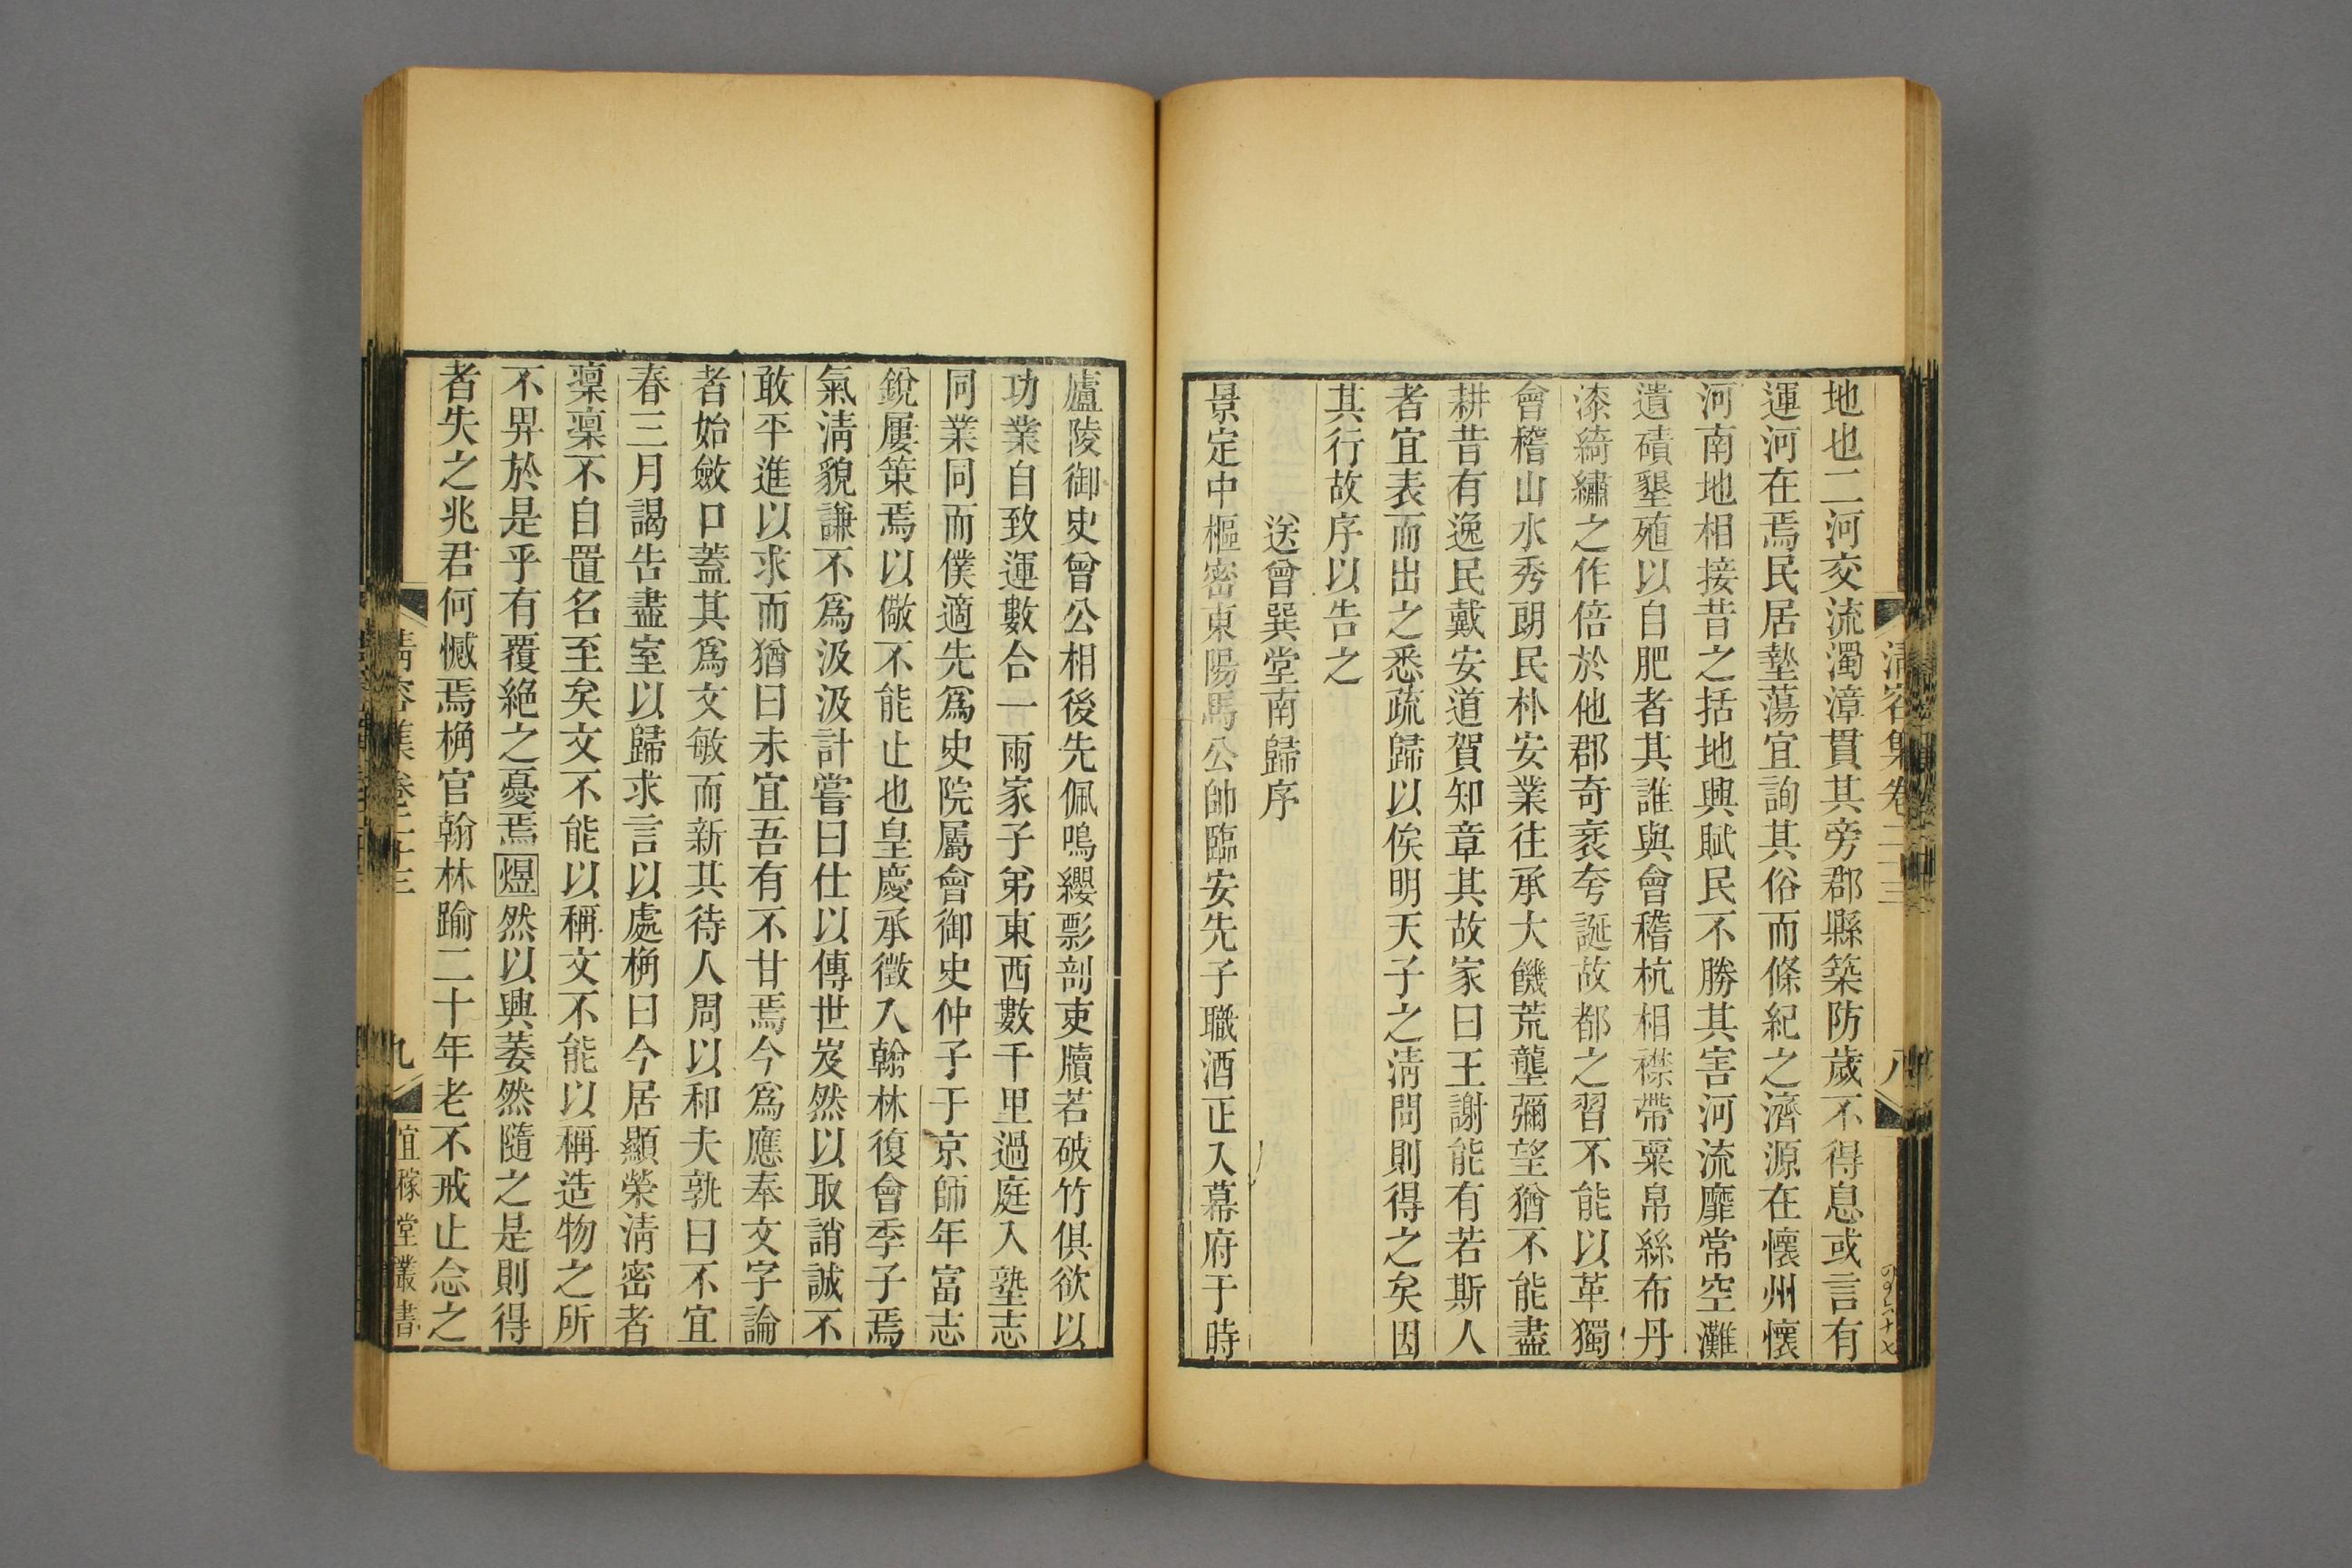 清容集卷二十三
八
地也二河交流濁漳貫其旁郡縣築防歲不得息或言有
運河在焉民居墊蕩宜詢其俗而條紀之濟源在懷州懷
河南地相接昔之括地興賦民不勝其害河流靡常空灘
遺磧墾殖以自肥者其誰與會稽杭相襟帶粟帛絲布丹
漆綺繡之作倍於他郡奇衺夸誕故都之習不能以革獨
會稽山水秀朗民朴安業往承大饑荒壟彌望猶不能盡
耕昔有逸民戴安道賀知章其故家曰王謝能有若斯人
者宜表而出之悉疏歸以俟明天子之淸問則得之矣因
其行故序以告之
送曾巽堂南歸序
景定中樞密東陽馬公帥臨安先子職酒正入幕府于時
廬陵御史曾公相後先佩鳴纓剽剖吏牘若破竹俱欲以
功業自致運數合一兩家子弟東西數千里過庭入塾志
同業同而僕適先爲史院屬會御史仲子于京師年富志
銳屢策焉以儆不能止也皇慶承徵入翰林復會季子焉
氣淸貌謙不爲汲汲計嘗曰仕以傳世岌然以取誚誠不
敢平進以求而猶曰未宜吾有不甘焉今爲應奉文字論
者始斂口蓋其爲文敏而新其待人周以和夫孰曰不宜
春三月謁告盡室以歸求言以處桷曰今居顯榮淸密者
稟稟不自置名至矣文不能以稱文不能以稱造物之所
不畀於是乎有覆絕之憂焉煜然以興萎然隨之是則得
者失之兆君何憾焉桷官翰林踰二十年老不戒止念之
淸容集卷二十三
九
宜稼堂叢書